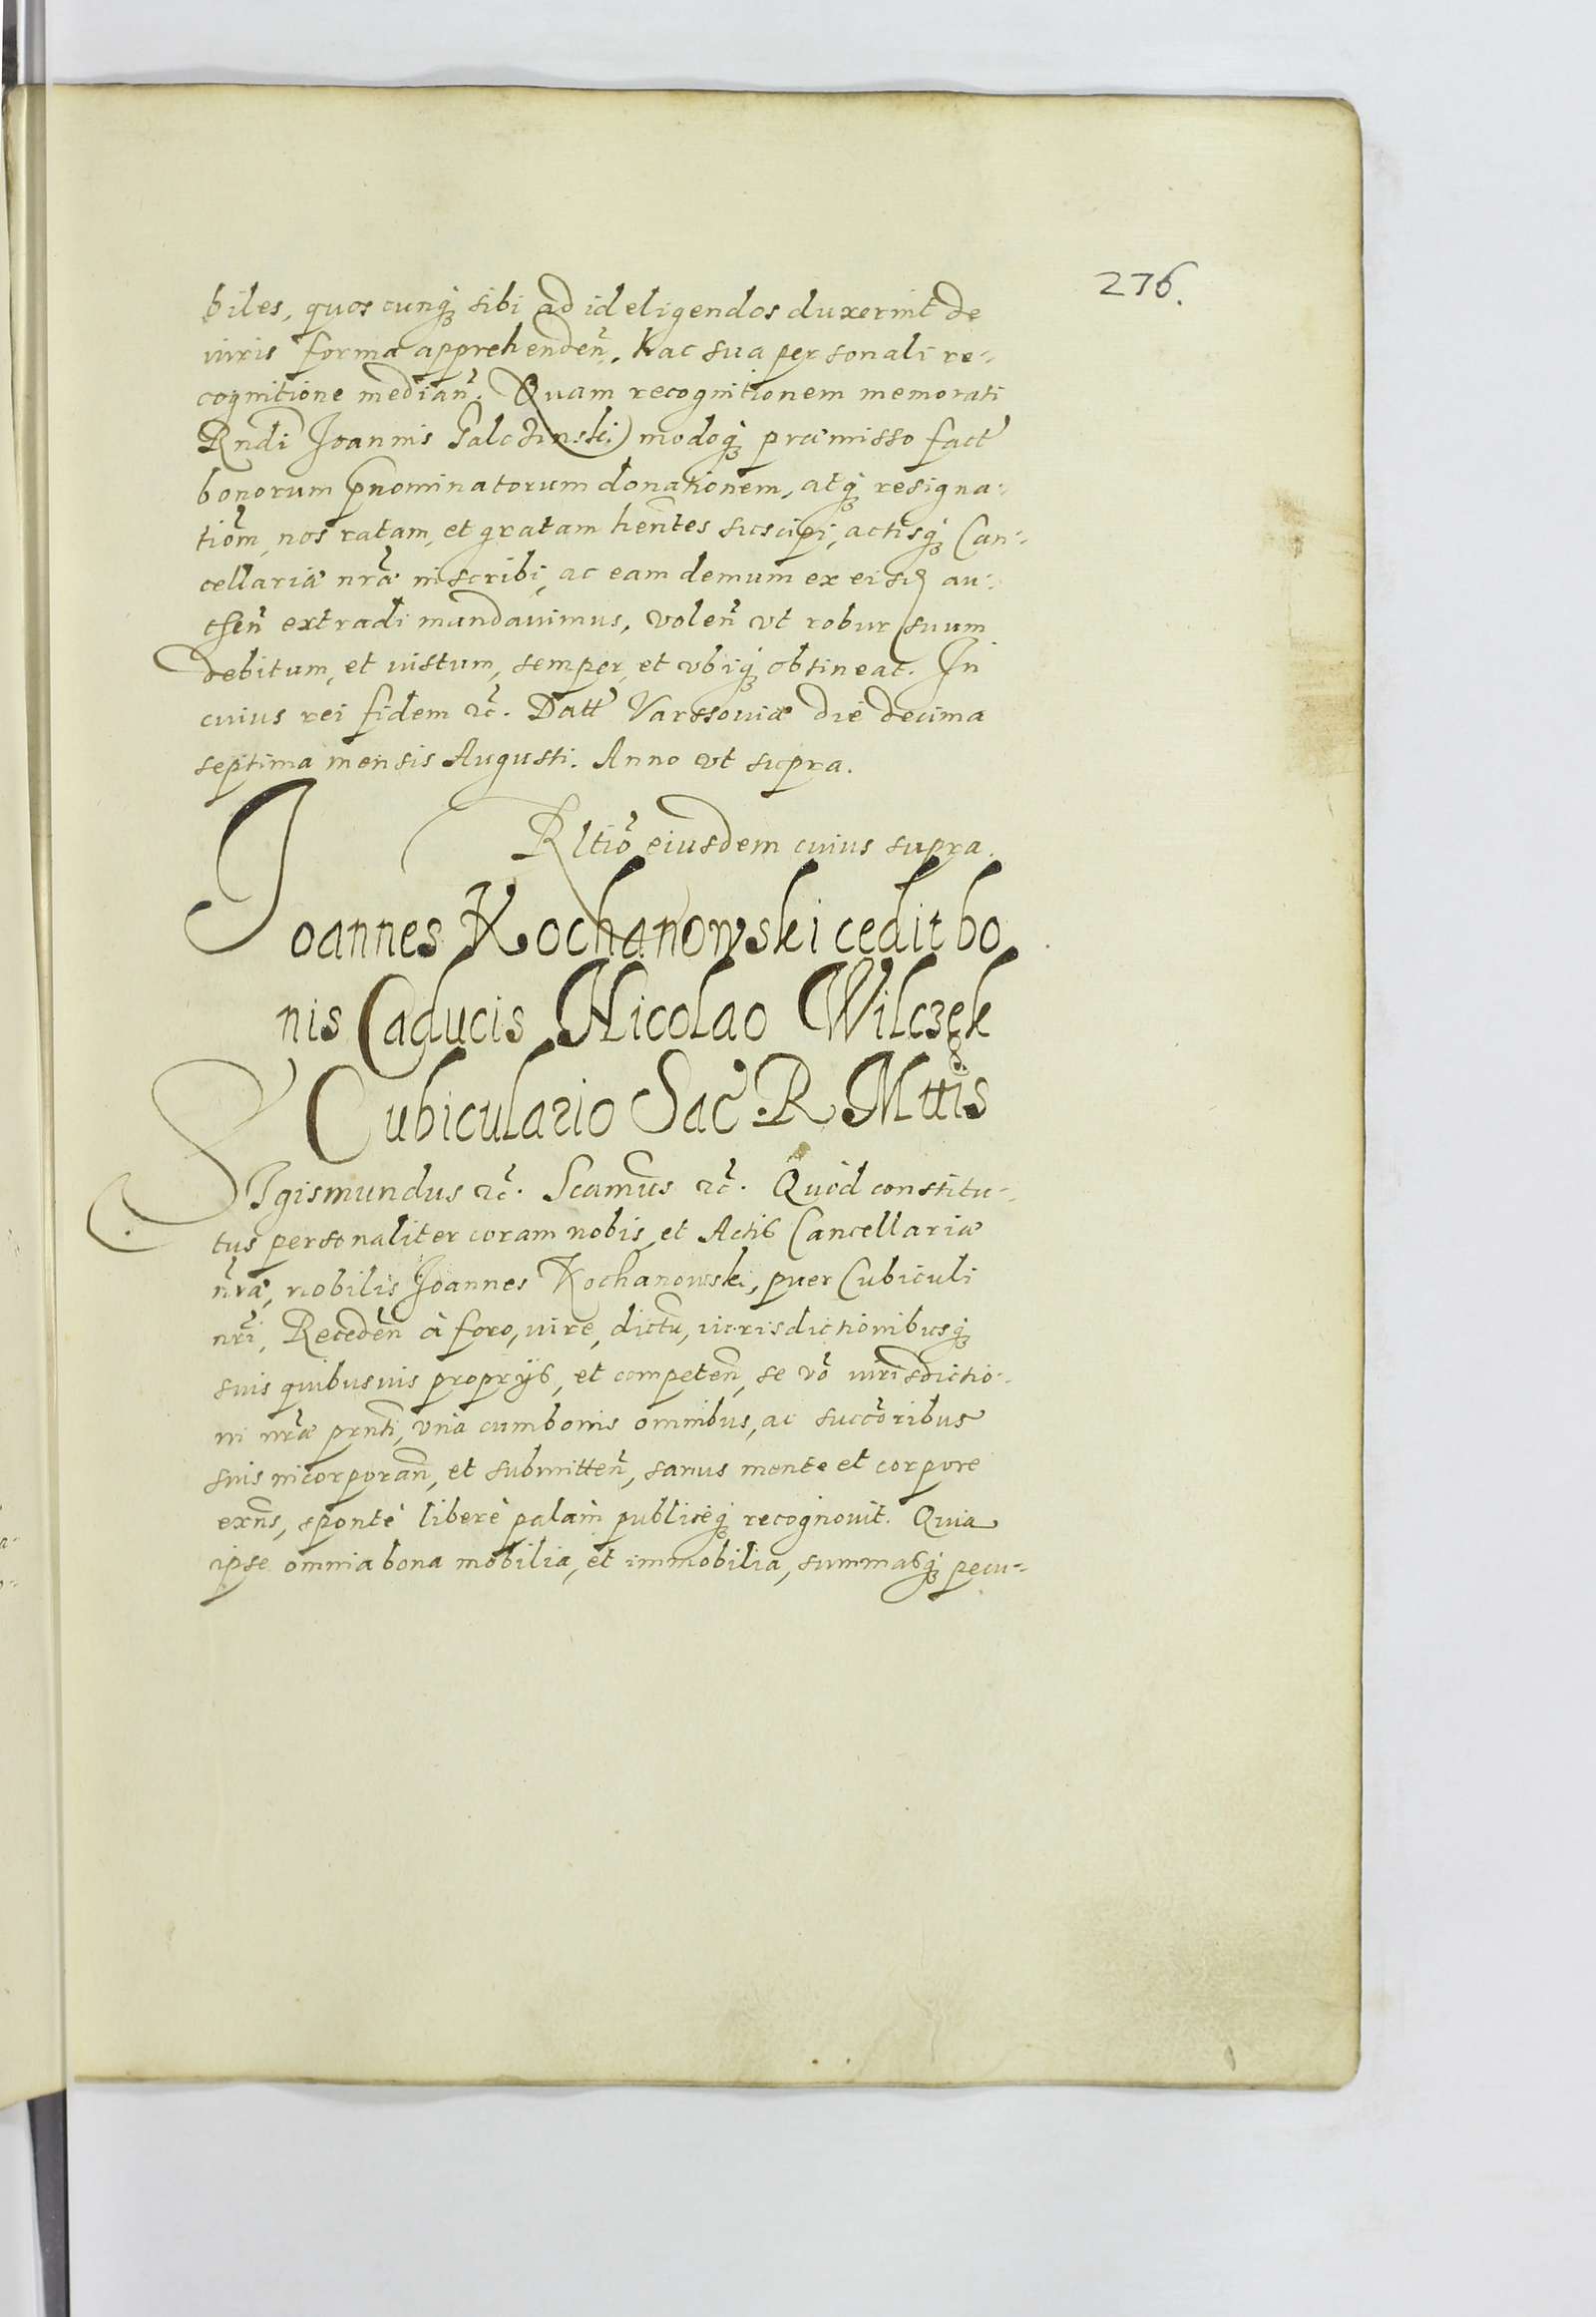 276.
biles, quoscunq́ʒ sibi ad id eligendos duxerint de
iuris forma apprehenden̄. hac sua personali re-
cognitione median̄. Quam recognitionem memorati
Rndi Joannis modoq́ʒ præmisso fact
bonorum p̄nominatorum donationem, atq́ʒ resigna-
tiōm, nos ratam, et gratam hentes suscipi, actisq́ʒ Can-
cellariæ nr̄æ inscribi, ac eam demum ex eisd au-
then̄ extradi mandauimus, volen̄ vt robur suum
debitum, et iustum, semper, et vbiq́ʒ obtineat. In
cuius rei fidem ꝛc̄. Datt Varssouiæ die decima
septima mensis Augusti. Anno vt supra.
Rltiō eiusdem cuius supra.
Joannes Kochanowski cedit bo
nis Caducis Nicolao Wilczek
Cubiculario Sac̄. R. Mttis
Sigismundus ꝛc̄. Scamus ꝛc̄. Quòd constitu-
tus personaliter coram nobis, et Actis Cancellariæ
nr̄æ, nobilis Joannes Kochanowski, puer Cubiculi
nr̄i, Receden̄ à foro, iure, dictu, iurisdictionibusq́ʒ
suis quibusuis proprijs, et competen̄, se vō iurisdictio-
ni nr̄æ prnti, vnà cum bonis omnibus, ac succōribus
suis incorporan̄, et submitten̄, sanus mente et corpore
exn̄s, spontè liberè palàm publicèq́ʒ recognouit. Quia
ipse omnia bona mobilia, et immobilia, summasq́ʒ pecu-